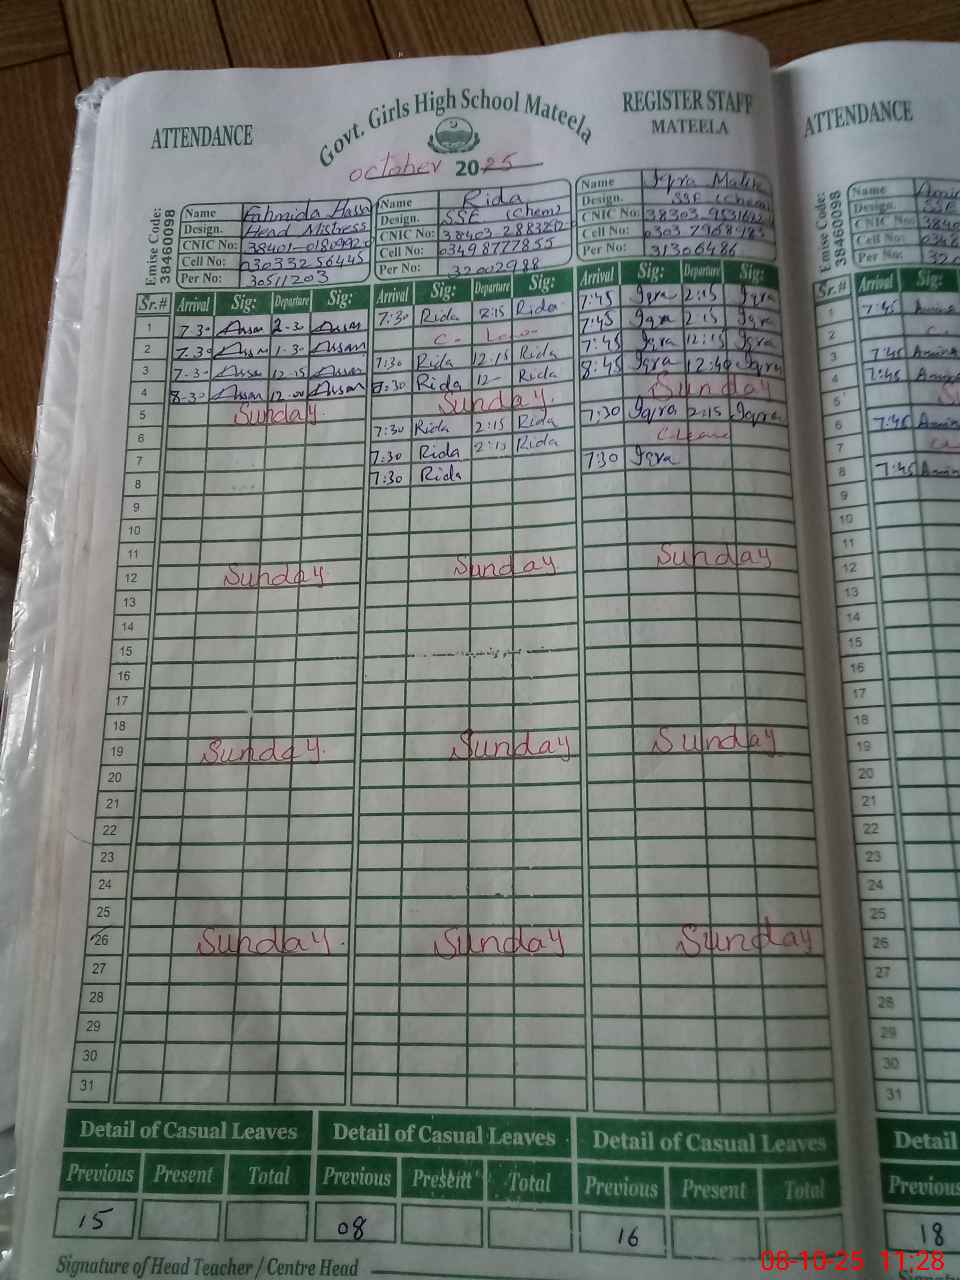 ATTENDANCE
Govt. Girls High School Mateela
REGISTER STAFF
MATEELA
October 2025
Emise Code:
38460098
Name Fahmida Hassa
Design. Head Mistress
CNIC No:
Cell No: 03033256445
Per No: 30511203
Name Rida
Design. SSE (Chem)
CNIC No: 38403-288320
Cell No: 03498777855
Per No: 32002988
Name Iqra Malik
Design. SSE (Chem)
CNIC No:
Cell No:
Per No: 31306486
Sr.# Arrival Sig: Departure Sig: Arrival Sig: Departure Sig: Arrival Sig: Departure Sig:
1 7-30 2-30 7:30 Rida 2:15 Rida 7:45 Iqra 2:15 Iqra
2 7.30 1-30 7:45 Iqra 2:15 Iqra
3 7-3- 12-15 7:30 Rida 12:15 Rida 7:45 Iqra 12:15 Iqra
4 8-30 12-00 8:30 Rida 12- Rida 8:45 Iqra 12:40 Iqra
5 Sunday. Sunday. Sunday
6 7:30 Rida 2:15 Rida 7:30 Iqra 2:15 Iqra
7 7:30 Rida 2:15 Rida C.leave
8 7:30 Rida 7:30 Iqra
9
10
11
12 Sunday. Sunday. Sunday
13
14
15
16
17
18
19 Sunday. Sunday Sunday
20
21
22
23
24
25
26 Sunday. Sunday Sunday
27
28
29
30
31
Detail of Casual Leaves Detail of Casual Leaves Detail of Casual Leaves
Previous Present Total Previous Present Total Previous Present Total
15 08 16
Signature of Head Teacher / Centre Head
ATTENDANCE
Emise Code:
38460098
Name
Design. SSE
CNIC No:
Cell No:
Per No: 320
Sr.# Arrival Sig:
1 7:45
2
3 7:45
4 7:45
5
6 7:45
7
8 7:45
9
10
11
12
13
14
15
16
17
18
19
20
21
22
23
24
25
26
27
28
29
30
31
Detail
Previous
18
08-10-25 11:28